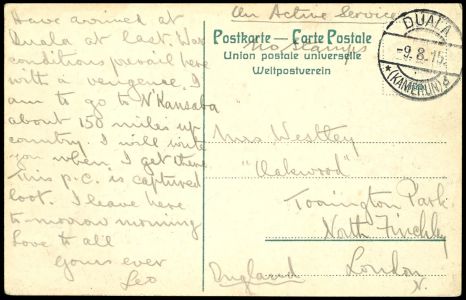 Have arrived at
Duala at last. War
conditions prevail here
with a vengence. I
am to go to N'Kansaba
about 150 miles up
country. I will write
you when I get there.
This p.c. is captured
loot. I leave here
to-morrow morning
Love to all
Yours ever
Leo
On Active Service
Postkarte — Carte Postale
No Stamps
Union postale universelle
Weltpostverein
DUALA
-9.8.15.
(KAMERUN)
Mrs Westley
"Oakwood"
Torrington Park
North Finchley
London
N.
England